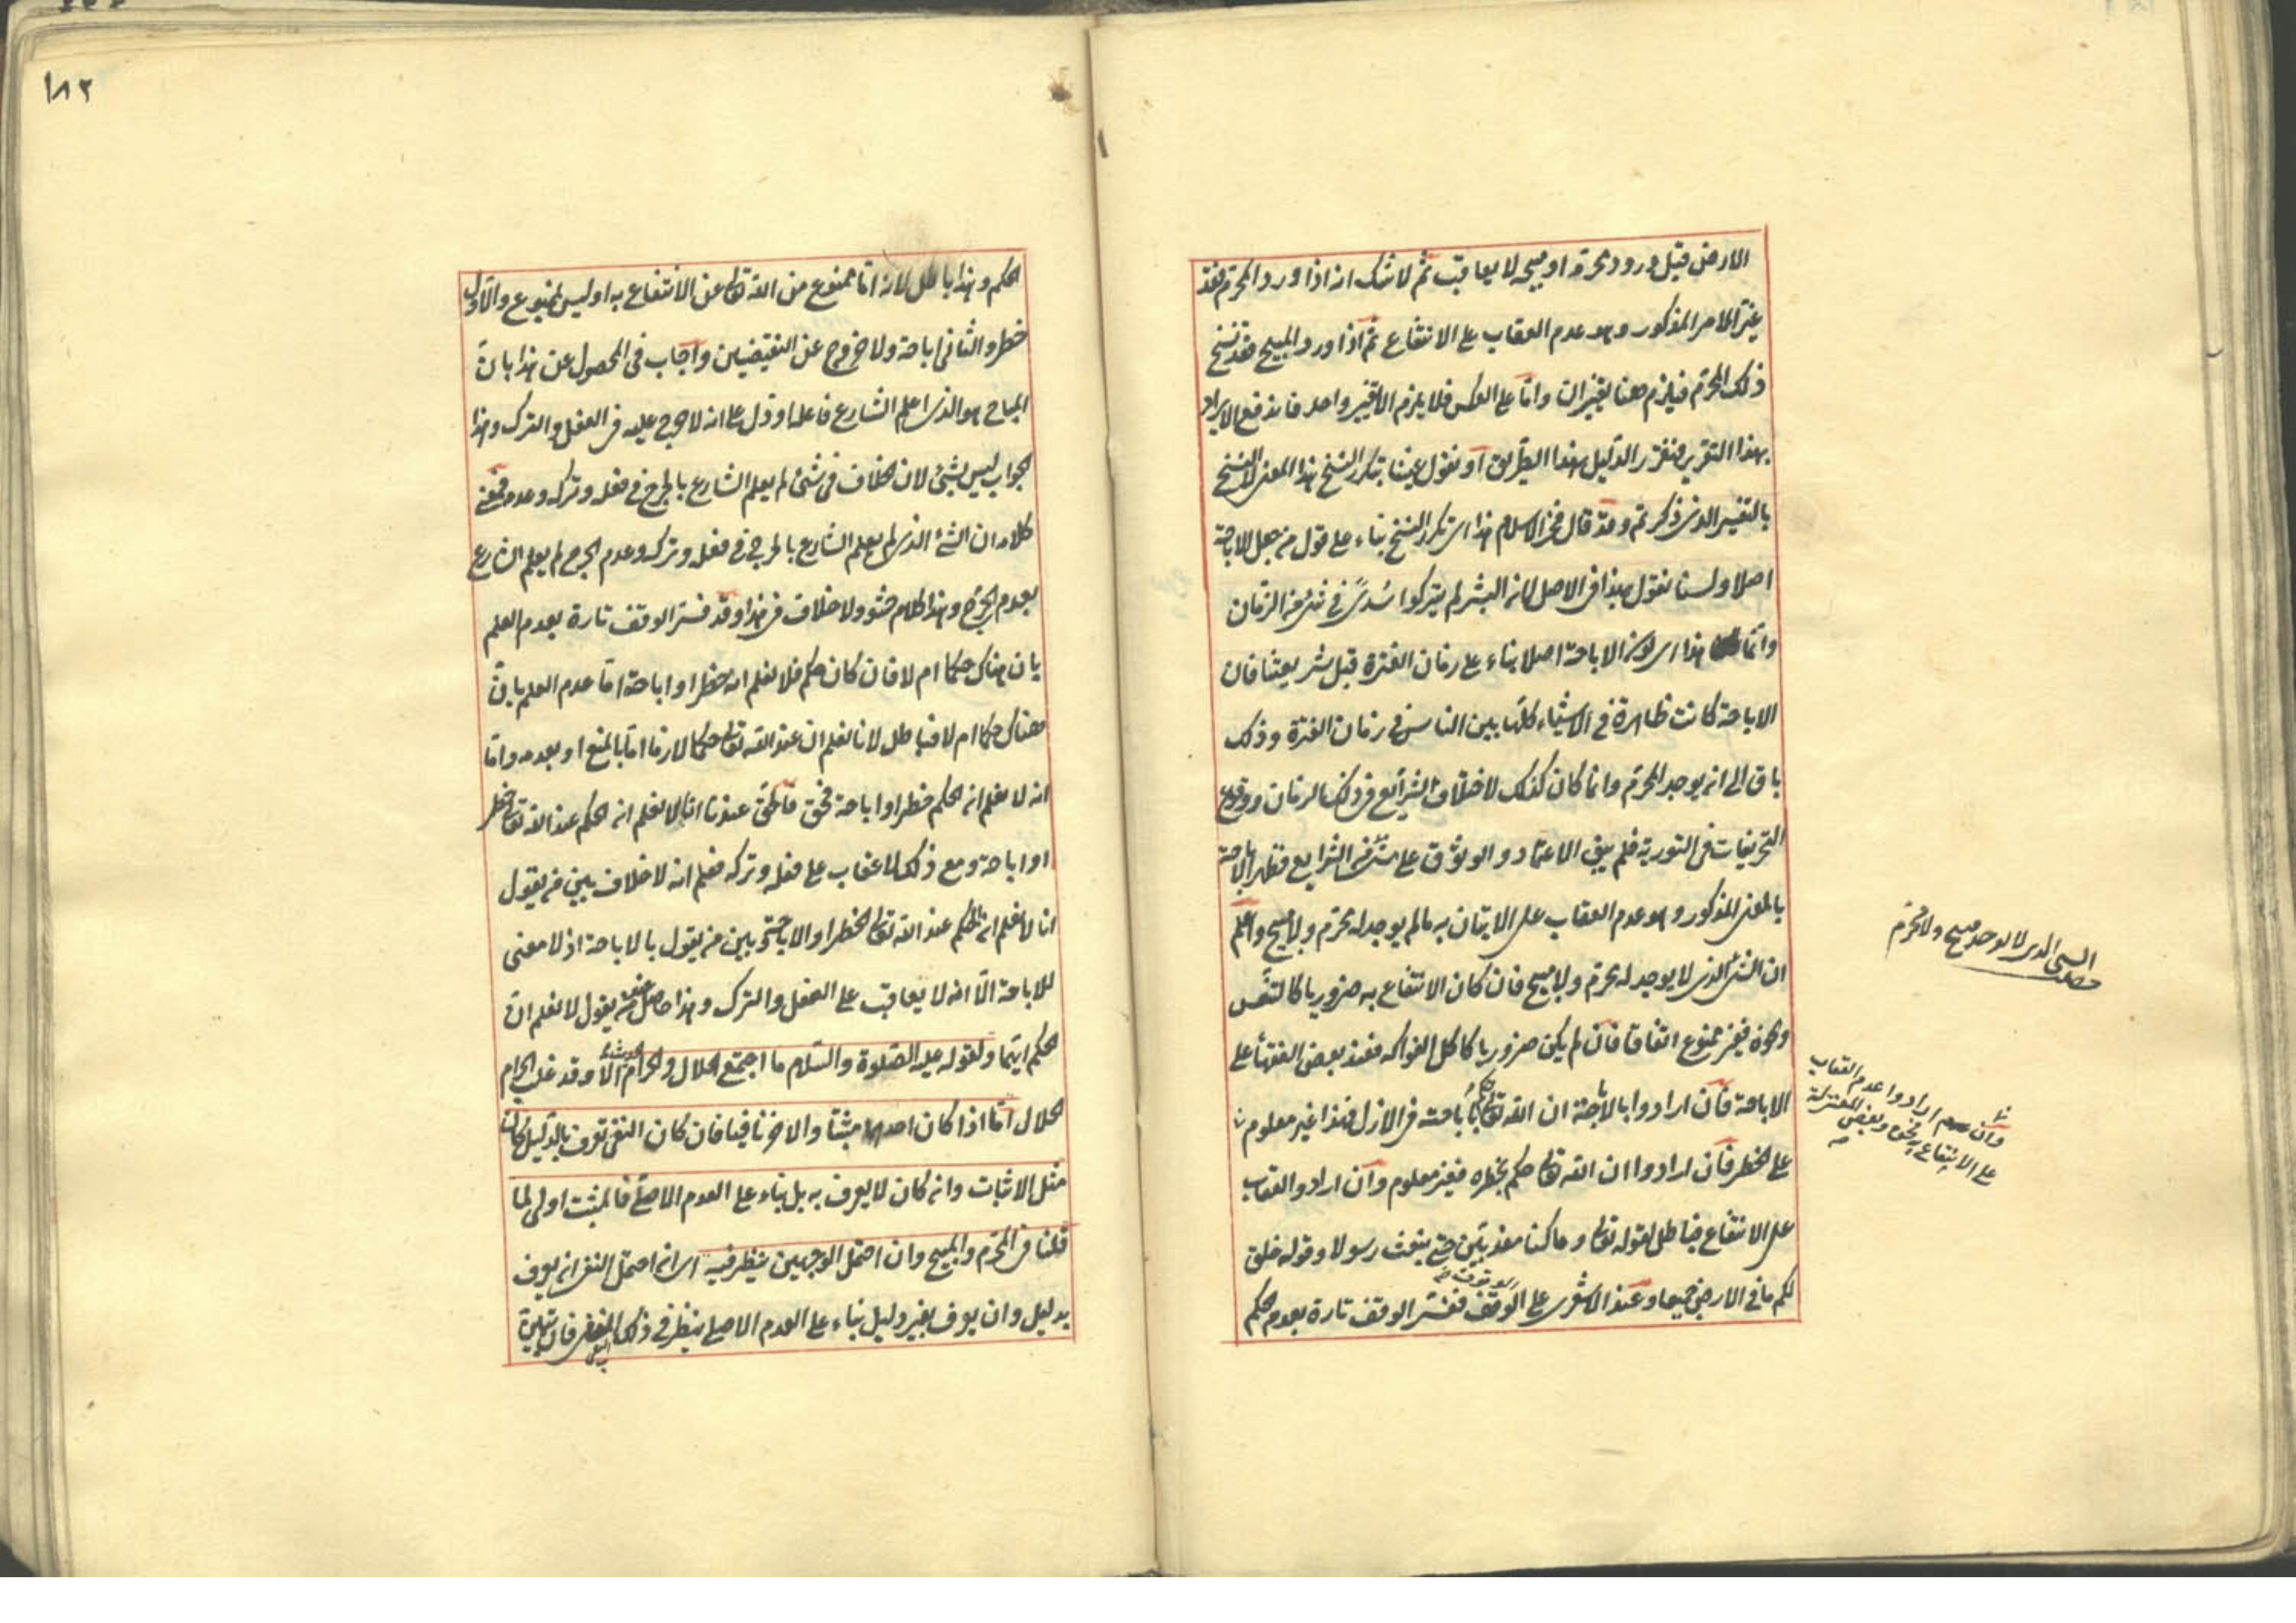 الارض قبل ورود محرمه او مبيحه لا يعاقب ثم لا شك انه اذا ورد المحرم فقد
غير الامر المذكور وهو عدم العقاب على الانتفاع ثم اذا ورد المبيح فقد نسخ
ذلك المحرم فيلزم هنا تغييران واما على العكس فلا يلزم الا تغيير واحد فاندفع الايراد
بهذا التقرير فتقرر الدليل بهذا الطريق او نقول عنينا بتكرر النسخ هذا المعنى لا النسخ
بالتفسير الذي ذكرتم وقد قال فخر الاسلام هذا اى تكرر النسخ بناء على قول من جعل الاباحة
اصلا ولسنا نقول بهذا في الاصل لان البشر لم يتركوا سدى في شئ من الزمان
وانما هذا اى كون الاباحة اصلا بناء على زمان الفترة قبل شريعتنا فان
الاباحة كانت ظاهرة في الاشياء كلها بين الناس في زمان الفترة وذلك
باق الى ان يوجد المحرم وانما كان كذلك لاختلاف الشرائع في ذلك الزمان ووقوع
التحريفات في التورية فلم يبق الاعتماد والوثوق على شئ من الشرايع فظهر الاباحة
بالمعنى المذكور وهو عدم العقاب على الاتيان به ما لم يوجد له محرم ولا مبيح واعلم
ان الشئ الذي لا يوجد له محرم ولا مبيح فان كان الانتفاع به ضروريا كالتنفس
ونحوه فغير ممنوع اتفاقا فان لم يكن ضروريا كاكل الفواكه فعند بعض الفقهاء على
الاباحة فان ارادوا بالاباحة ان الله تعالى حكم باباحته في الازل فهذا غير معلوم
على الخطر فان ارادوا ان الله تعالى حكم بخطره فغير معلوم وان ارادوا العقاب
على الانتفاع فباطل لقوله تعالى وما كنا معذبين حتى نبعث رسولا وقوله خلق
لكم ما في الارض جميعا وعند الاشعرى على الوقف ففسر الوقف تارة بعدم الحكم
الشئ الذي لا يوجد له مبيح ولا محرم
وان ارادوا عدم العقاب
على الانتفاع به فحق وبعض المعتزلة
١٨٢
الحكم وهذا باطل لانه اما ممنوع من الله تعالى عن الانتفاع به او ليس بممنوع والاول
خطر والثاني اباحة ولا خروج عن النقيضين واجاب في المحصول عن هذا بان
المباح هو الذي اعلم الشارع فاعله او دل على انه لا حرج عليه في الفعل والترك وهذا
الجواب ليس بشئ لان الخلاف في شئ لم يعلم الشارع بالحرج في فعله وتركه وعدمه فمعنى
كلامه ان الشئ الذي لم يعلم الشارع بالحرج في فعله وتركه وعدم الحرج لم يعلم الشارع
بعدم الحرج وهذا كلام حشو ولا خلاف في هذا وقد فسر الوقف تارة بعدم العلم
بان هناك حكما ام لا فان كان حكم فلا نعلم انه خطر او اباحة اما عدم العلم بان
هناك حكما ام لا فباطل لانا نعلم ان عند الله تعالى حكما لازما اما بالمنع او بعدمه واما
انه لا نعلم انه الحكم خطر او اباحة فحق فالحق عندنا انا لا نعلم انه الحكم عند الله تعالى خطر
او اباحة ومع ذلك لا عقاب على فعله وتركه فعلم انه لا خلاف بين من يقول
انا لا نعلم انه الحكم عند الله تعالى الخطر او الاباحة وبين من يقول بالاباحة اذ لا معنى
للاباحة الا انه لا يعاقب على الفعل والترك وهذا حاصل عند من يقول لا نعلم ان
الحكم ايهما ولقوله عليه الصلوة والسلام ما اجتمع الحلال والحرام الا وقد غلب الحرام
الحلال اما اذا كان احدهما مثبتا والاخر نافيا فان كان النفى يعرف بالدليل كان
مثل الاثبات وانه كان لا يعرف به بل بناء على العدم الاصلى فالمثبت اولى لما
قلنا في المحرم والمبيح وان احتمل الوجهين ينظر فيه اى ان احتمل النفى ان يعرف
بدليل وان يعرف بغير دليل بناء على العدم الاصلى ينظر في ذلك النفى فان تبين